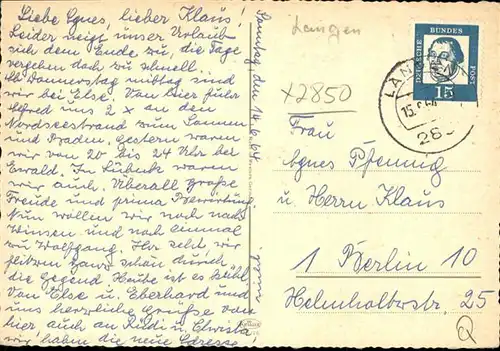 Sonntag, den 14.6.64
Liebe Agnes, lieber Klaus!
Leider neigt unser Urlaub
sich dem Ende zu, die Tage
vergehen doch zu schnell.
Ab Donnerstag mittag sind
wir bei Else. Von hier fuhr
Alfred uns 2 x an den
Nordseestrand zum Sonnen
und Baden. Gestern waren
wir von 20 bis 24 Uhr bei
Ewald. In Lübeck waren
wir auch. Überall große
Freude und prima Bewirtung.
Nun wollen wir noch nach
Winsen und noch einmal
zu Wolfgang. Ihr seht wir
flitzen ganz schön durch
die Gegend. Heute ist es kühl.
Von Else u. Eberhard und
uns herzliche Grüße von
hier, auch an Rudi u. Christa,
wir haben die neue Adresse
Langen
X2850
DEUTSCHE BUNDESPOST
15
LANGEN
Frau
Agnes Pfennig
u. Herrn Klaus
1 Berlin 10
Helmholtzstr. 25